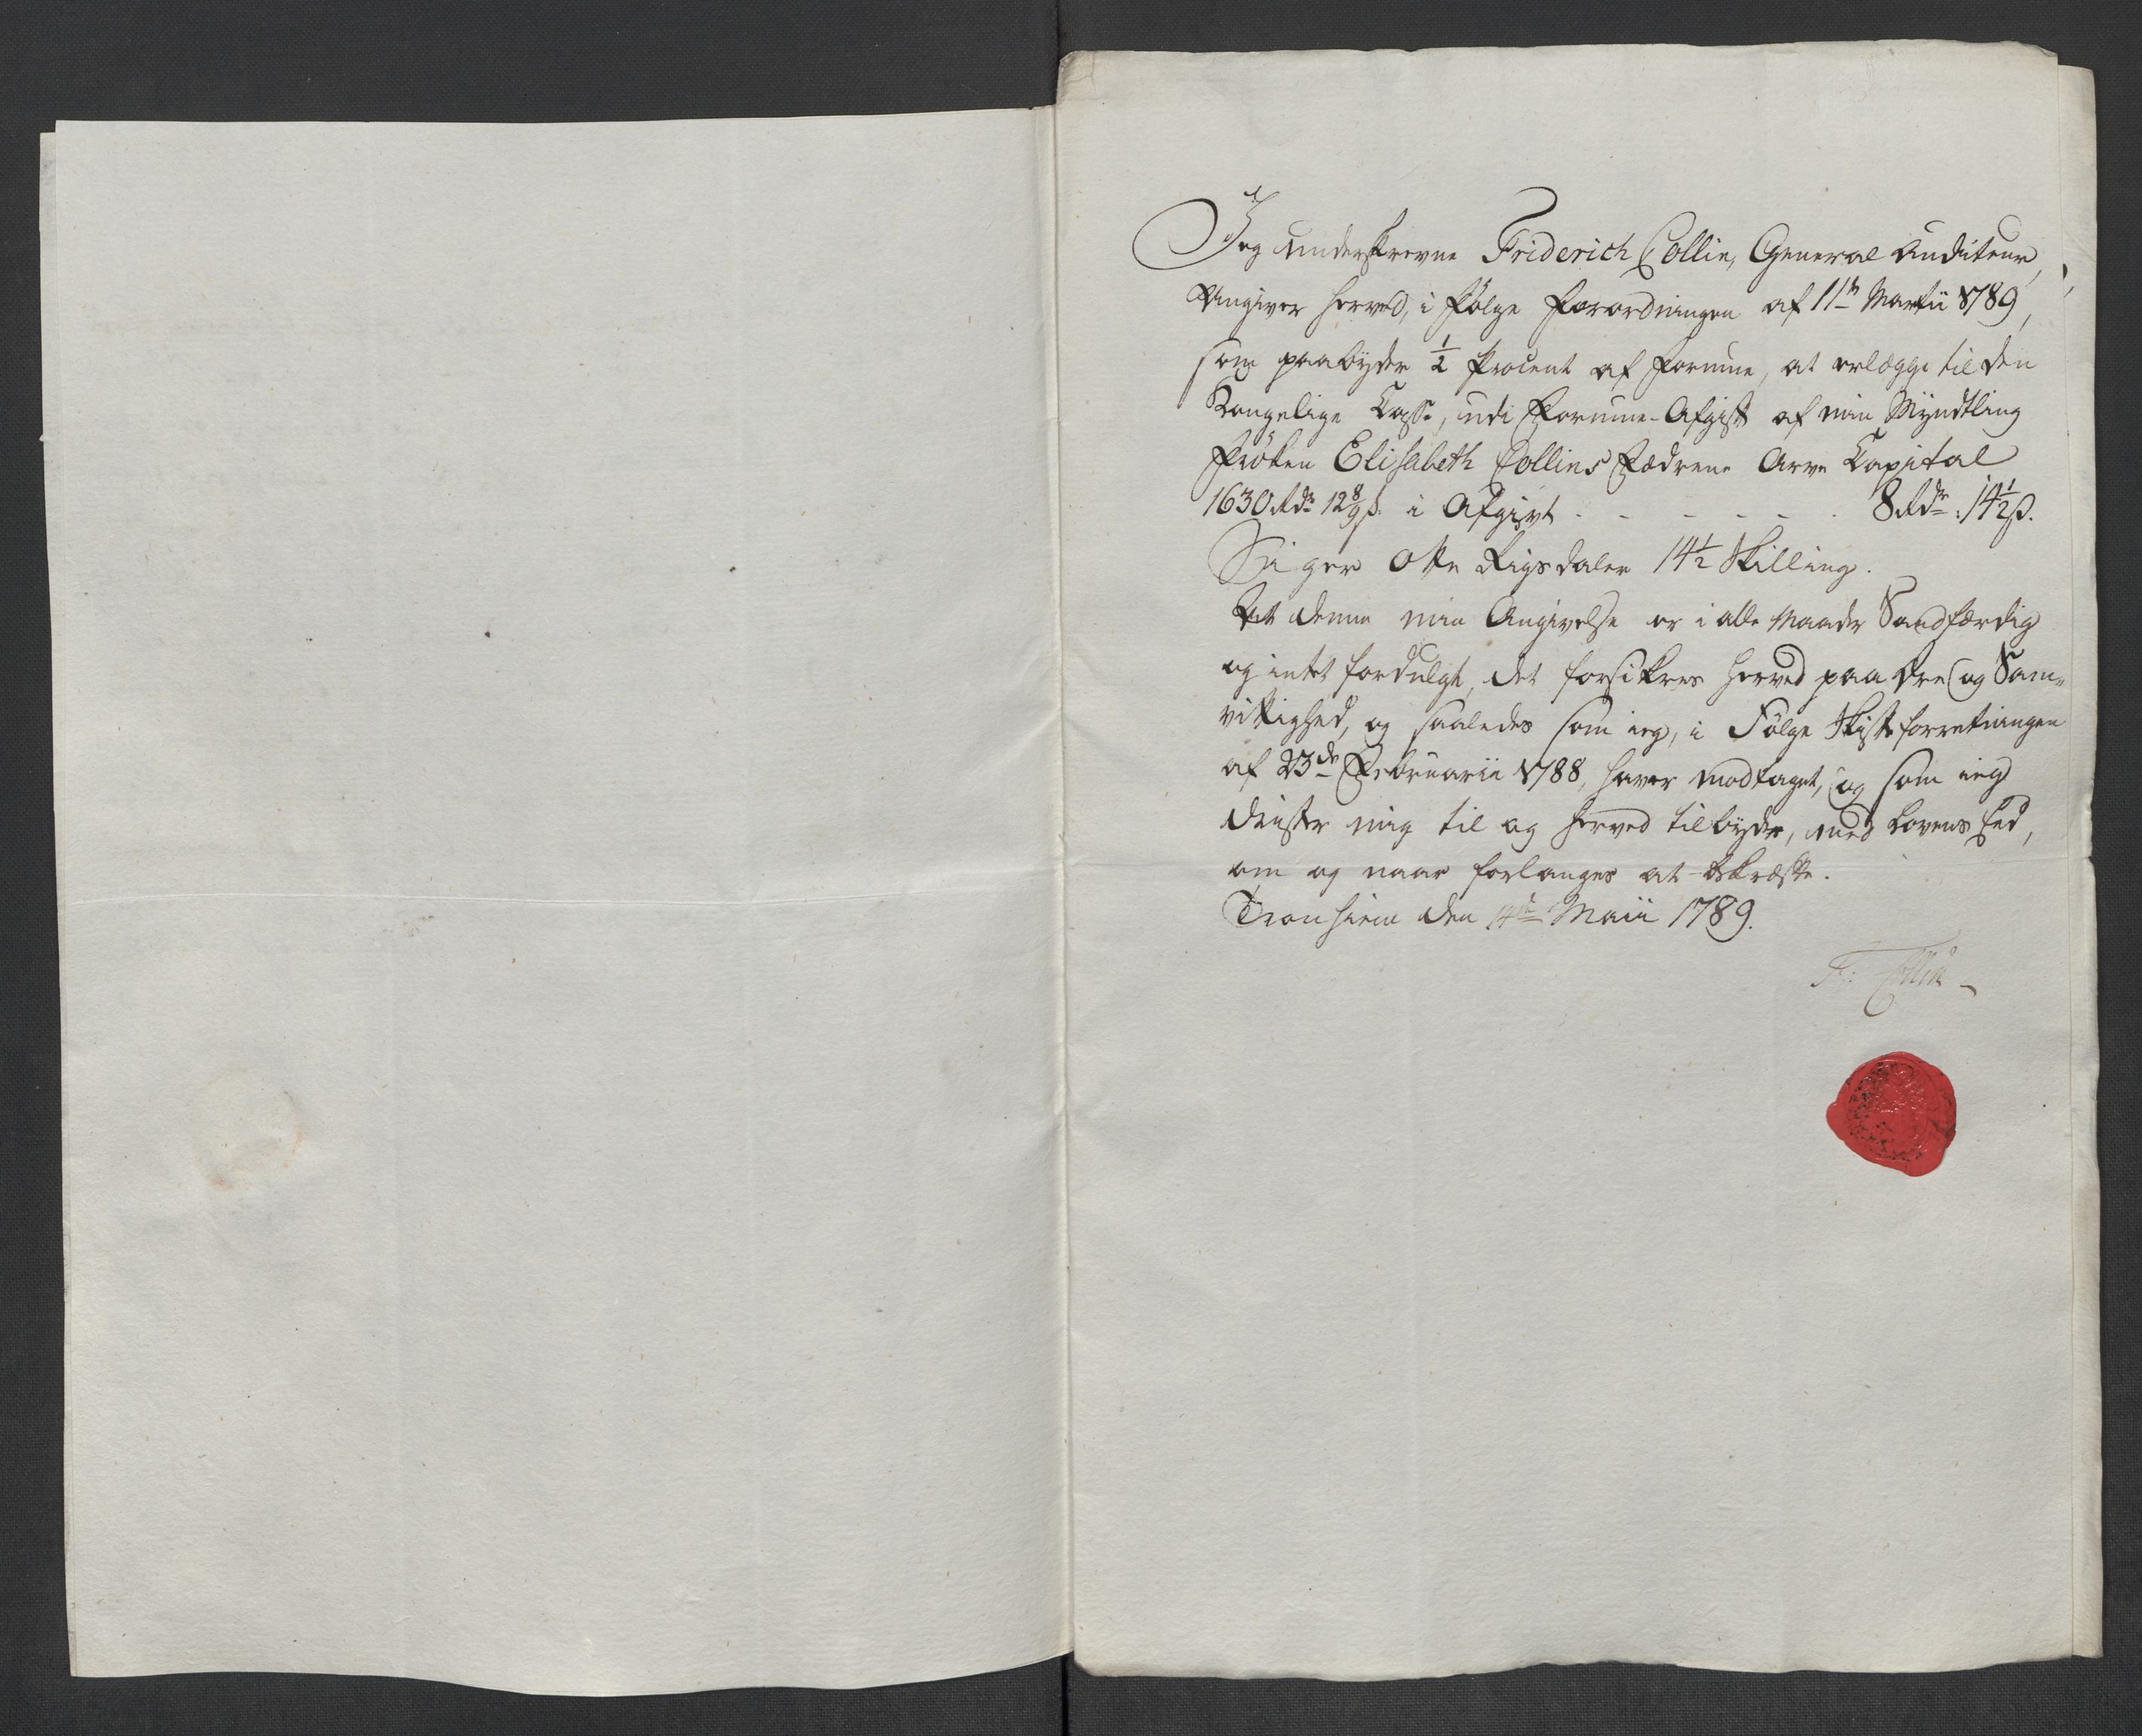 Jeg underskrevne Friderich Collin, General Auditeur,
Angiver herved, i følge Forordningen af 11te Martii 1789,
som paabyder ½ Procent af Formue, at erlægge til den
Kongelige Casse, udi Formue-Afgift af min Myndtling
Frøken Elisabeth Collins Fædrene Arve Capital
1630 Rdr 12 8/9 s. i Afgivt - - - - - - 8 Rdr: 14½ s.
Siger Otte Rigsdaler 14½ Skilling.
At denne min Angivelse er i alle Maader Sandfærdig
og intet fordulgt, det forsikres herved paa Ære og Sam-
vittighed, og saaledes som ieg, i Følge Skifteforretningen
af 23de Februarii 1788, haver modtaget, og som ieg
drister mig til og herved tilbyder, med Lovens Eed,
om og naar forlanges at bekræfte.
Tronhiem den 14de Maii 1789.
F: Collin